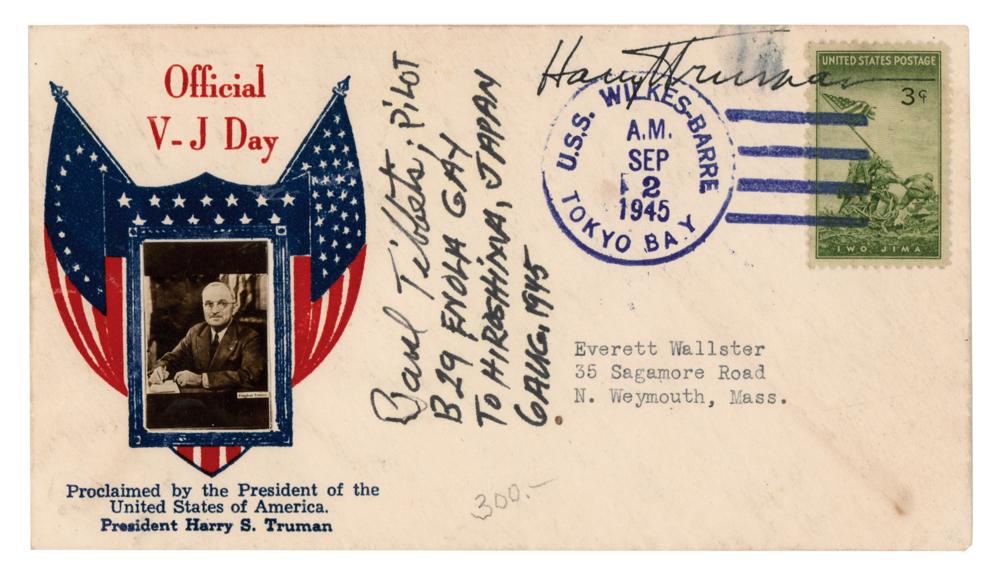 Official
V-J Day
Proclaimed by the President of the
United States of America.
President Harry S. Truman
Paul Tibbets, PILOT
B29 ENOLA GAY
TO HIROSHIMA, JAPAN
6 AUG. 1945
Harry S Truman
U.S.S. WILKES-BARRE
A.M.
SEP
2
1945
TOKYO BAY
UNITED STATES POSTAGE
3¢
IWO JIMA
Everett Wallster
35 Sagamore Road
N. Weymouth, Mass.
300.-